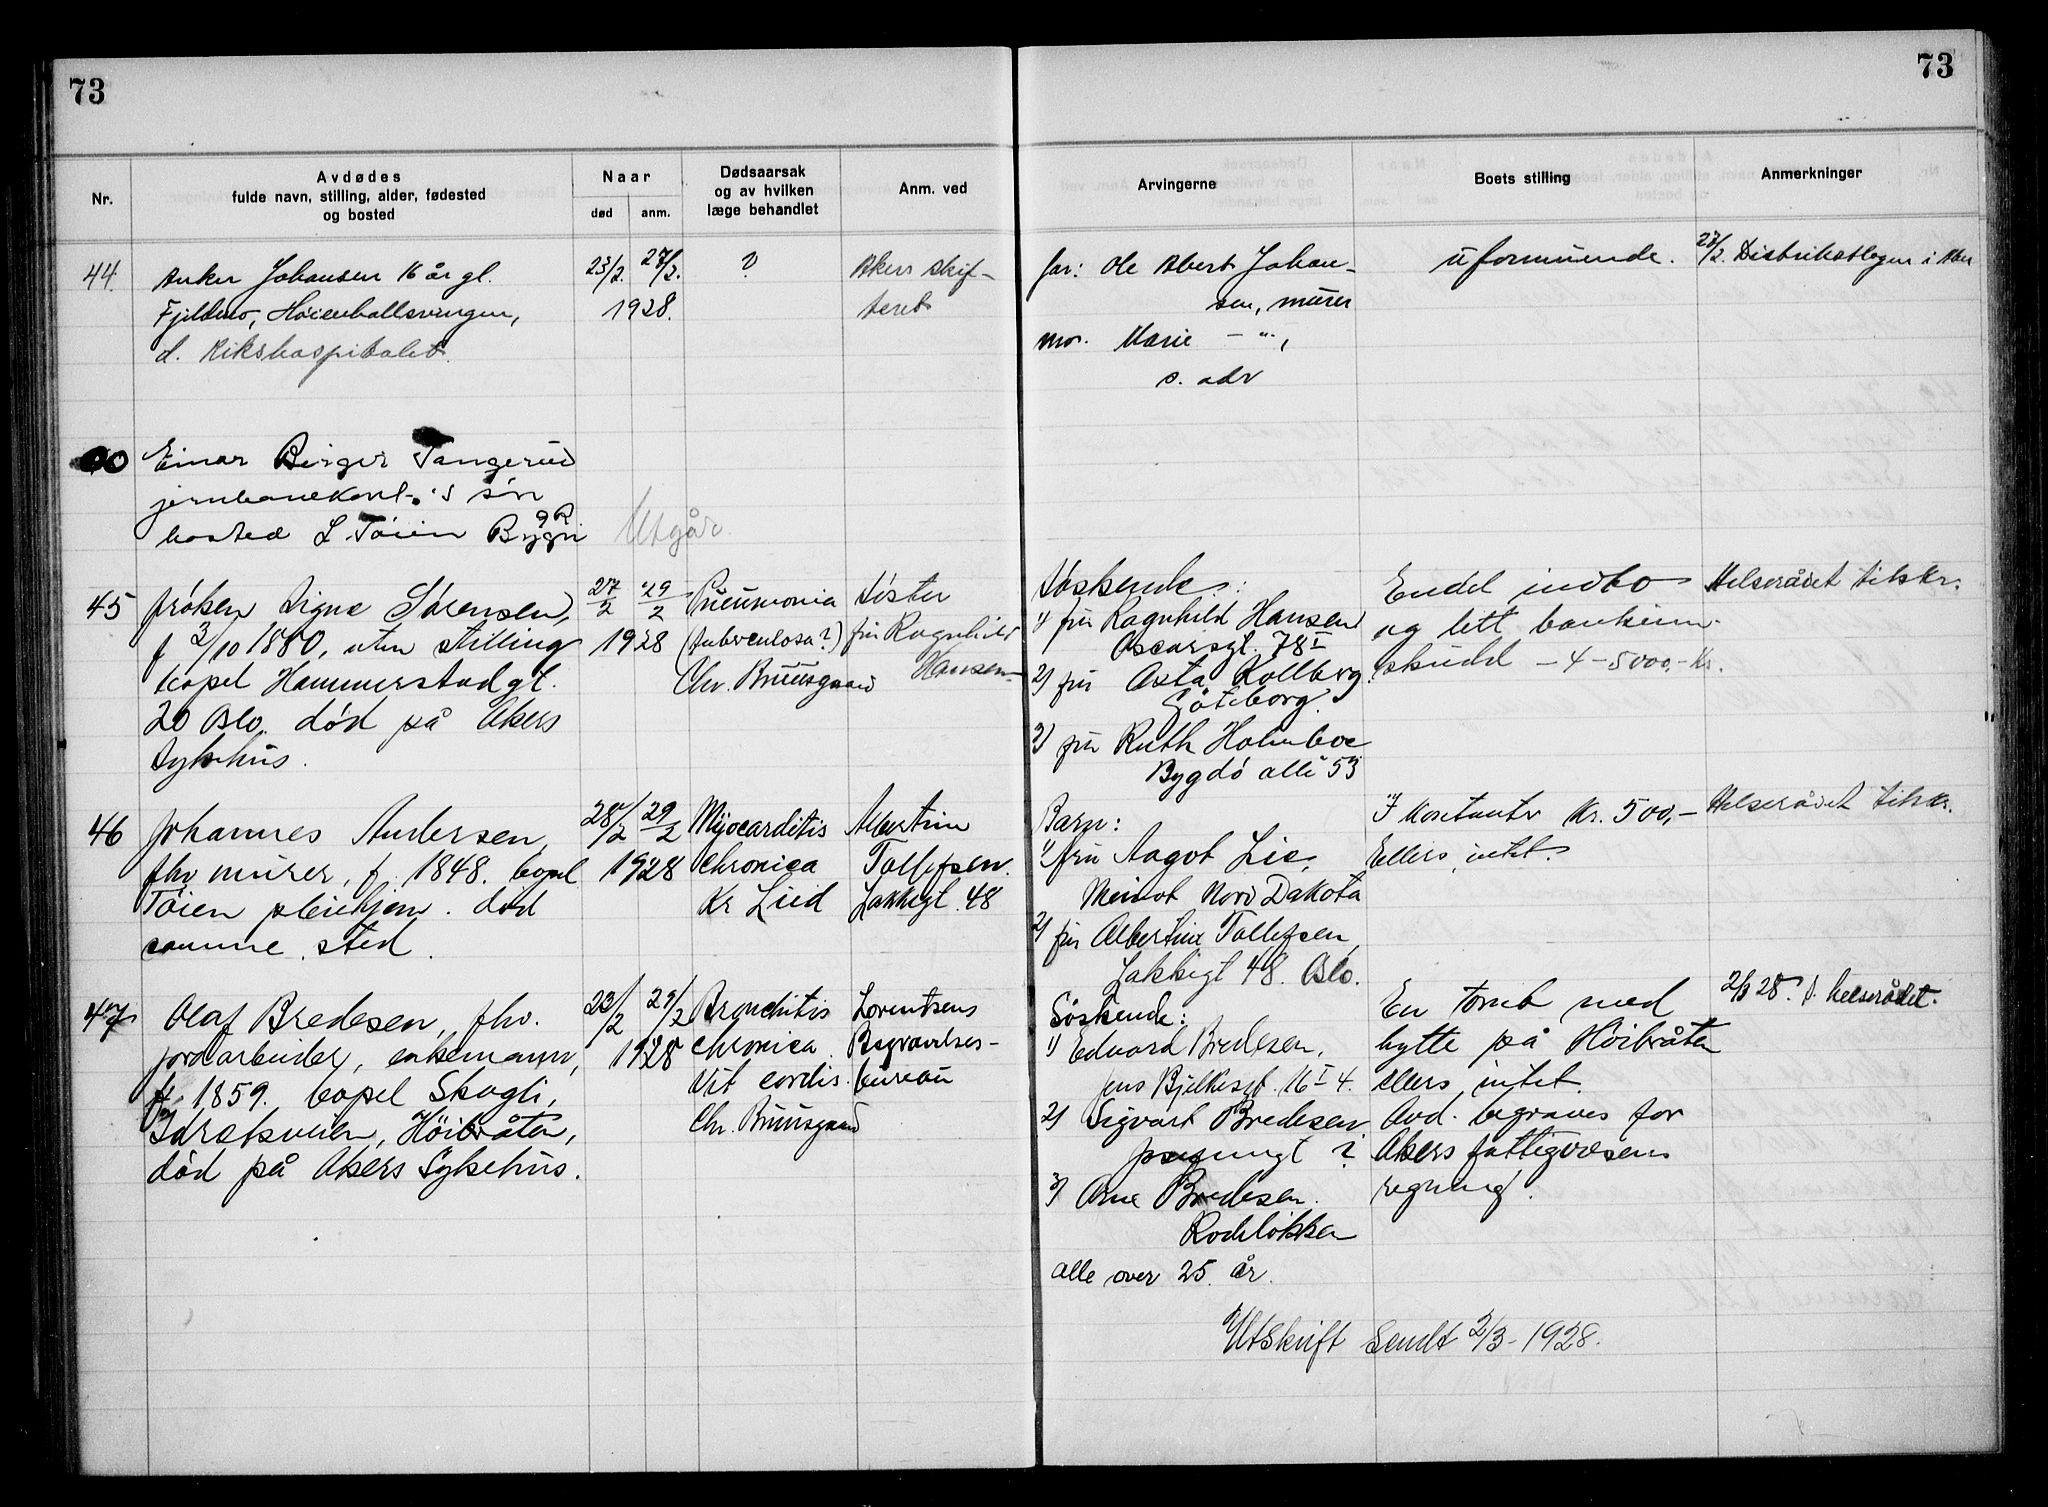 73
73
Nr.
Avdødes
fulde navn, stilling, alder, fødested
og bosted
Naar
død
anm.
Dødsaarsak
og av hvilken
læge behandlet
Anm. ved
Arvingerne
Boets stilling
Anmerkninger
44. Anker Johansen 16 år gl.
Fjeldmo, Høienhallsvingen,
d. Rikshospitalet.
23/2. 27/2.
1928.
?
Akers skif-
teret
far: Ole Albert Johan-
sen, murer
mor. Marie — " — ,
s. adr
uformuende.
27/2. Distriktslegen i Aker
40 Einar Birger Tangerud
jernbanekont-.'s søn
bosted L. Tøien Bygn
Utgår.
45 frøken Signe Sørensen,
f 3/10 1880, uten stilling
bopel Hammerstadgt.
20 Oslo. død på Akers
Sykehus.
27/2 29/2
1928
Pneumonia
(tuberculosa?)
Chr. Bruusgaard
Søster
fru Ragnhild
Hansen
Søskende:
1) fru Ragnhild Hansen
Oscarsgt. 78 I
2) fru Asta Kollberg
Göteborg.
3) fru Ruth Holmboe
Bygdø allé 53
Endel indbo
og litt bankinn-
skudd – 4 – 5000,- Kr.
Helserådet tilskr.
46 Johannes Andersen,
fhv murer, f. 1848. bopel
Tøien pleiehjem. død
samme sted.
28/2 29/2
1928
Myocarditis
chronica
Kr Lied
Albertine
Tollefsen.
Lakkegt. 48
Barn:
1) fru Aagot Lie,
Meinot Nord Dakota
2) fru Albertine Tollefsen,
Lakkegt 48. Oslo.
I kontanter Kr. 500,-
Ellers intet.
Helserådet tilskr.
47 Olaf Bredesen, fhv.
jordarbeider, enkemann,
f. 1859. bopel Skogli,
Idretsveien, Høibråten,
død på Akers Sykehus.
23/2 29/2
1928
Bronchitis
chronica
Vit cordis.
Chr. Bruusgaard
Lorentsens
Begravelses-
bureau
Søskende:
1) Edvard Bredesen,
Jens Bjelkesgt. 16 I 4.
2) Sigvart Bredesen
?
3) Arne Bredesen.
Rodeløkken
alle over 25 år.
En tomt med
hytte på Høibråten
ellers intet.
Avd. begraves for
Akers fattigvæsens
regning.
2/3 28. s. helserådet.
Utskrift Sendt 2/3 - 1928.